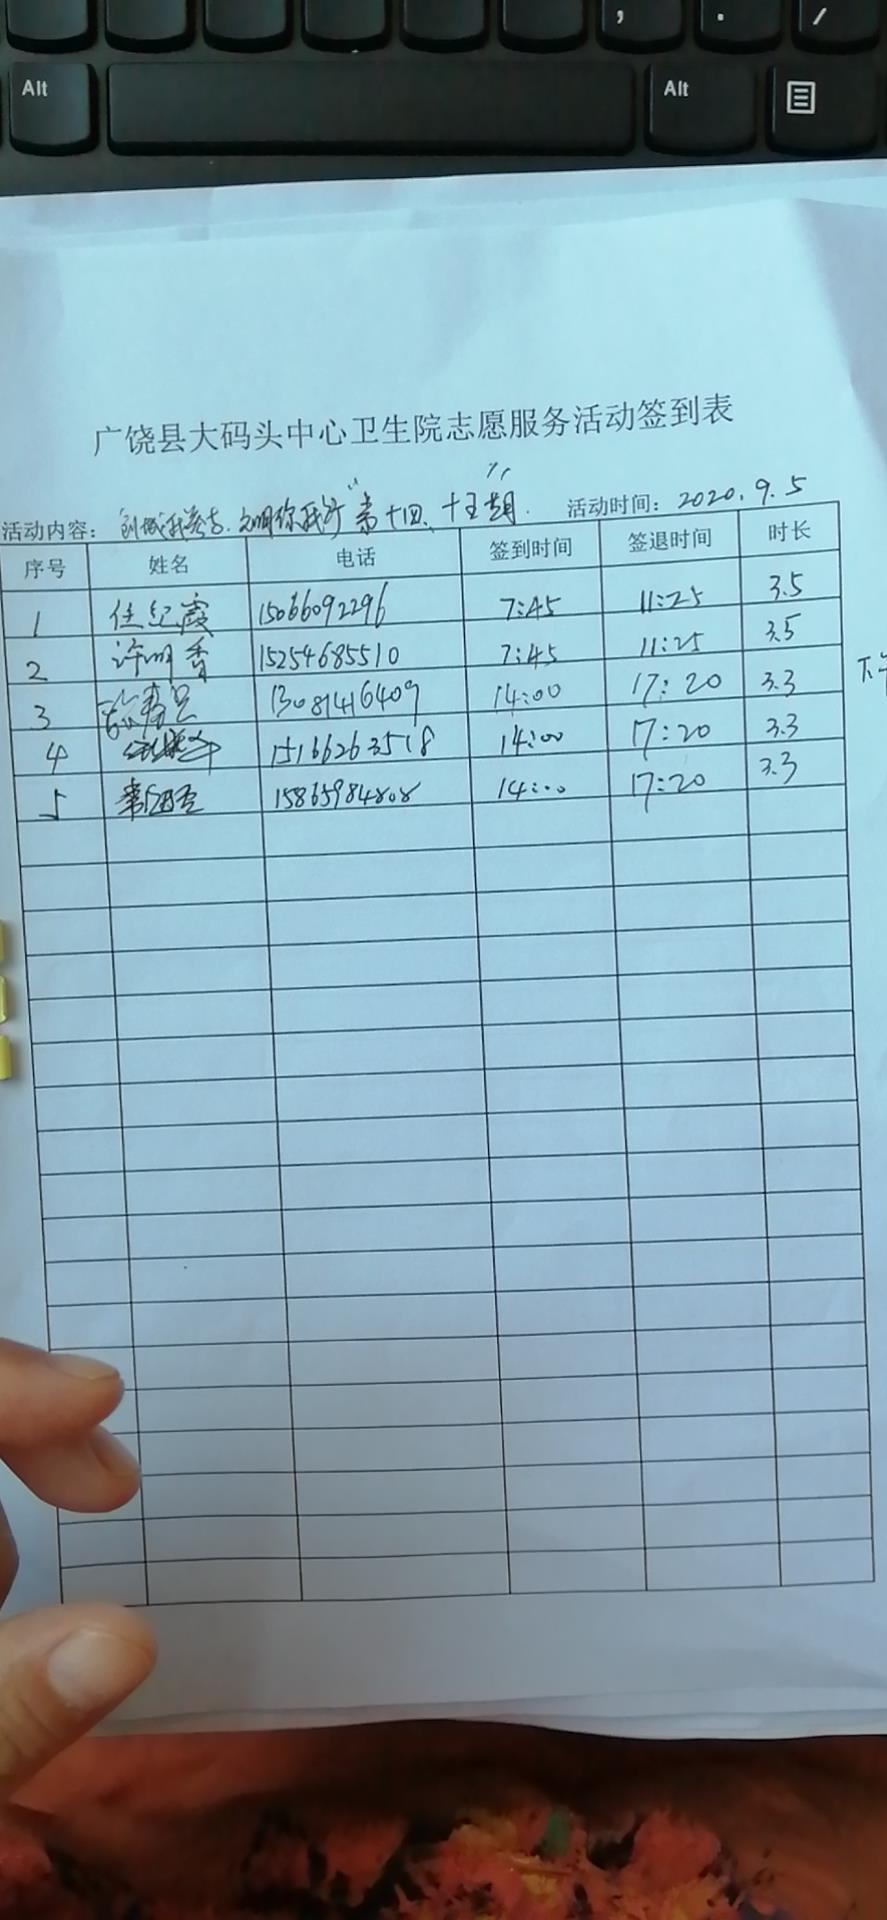 Alt
Alt
广饶县大码头中心卫生院志愿服务活动签到表
活动内容：“创城我参与.文明你我行”第十四、十五期. 活动时间：2020.9.5
序号 姓名 电话 签到时间 签退时间 时长
1 任纪霞 15066092296 7:45 11:25 3.5
2 许明香 15254685510 7:45 11:25 3.5
3 13081416409 14:00 17:20 3.3
4 15166263518 14:00 17:20 3.3
5 15865984808 14:00 17:20 3.3